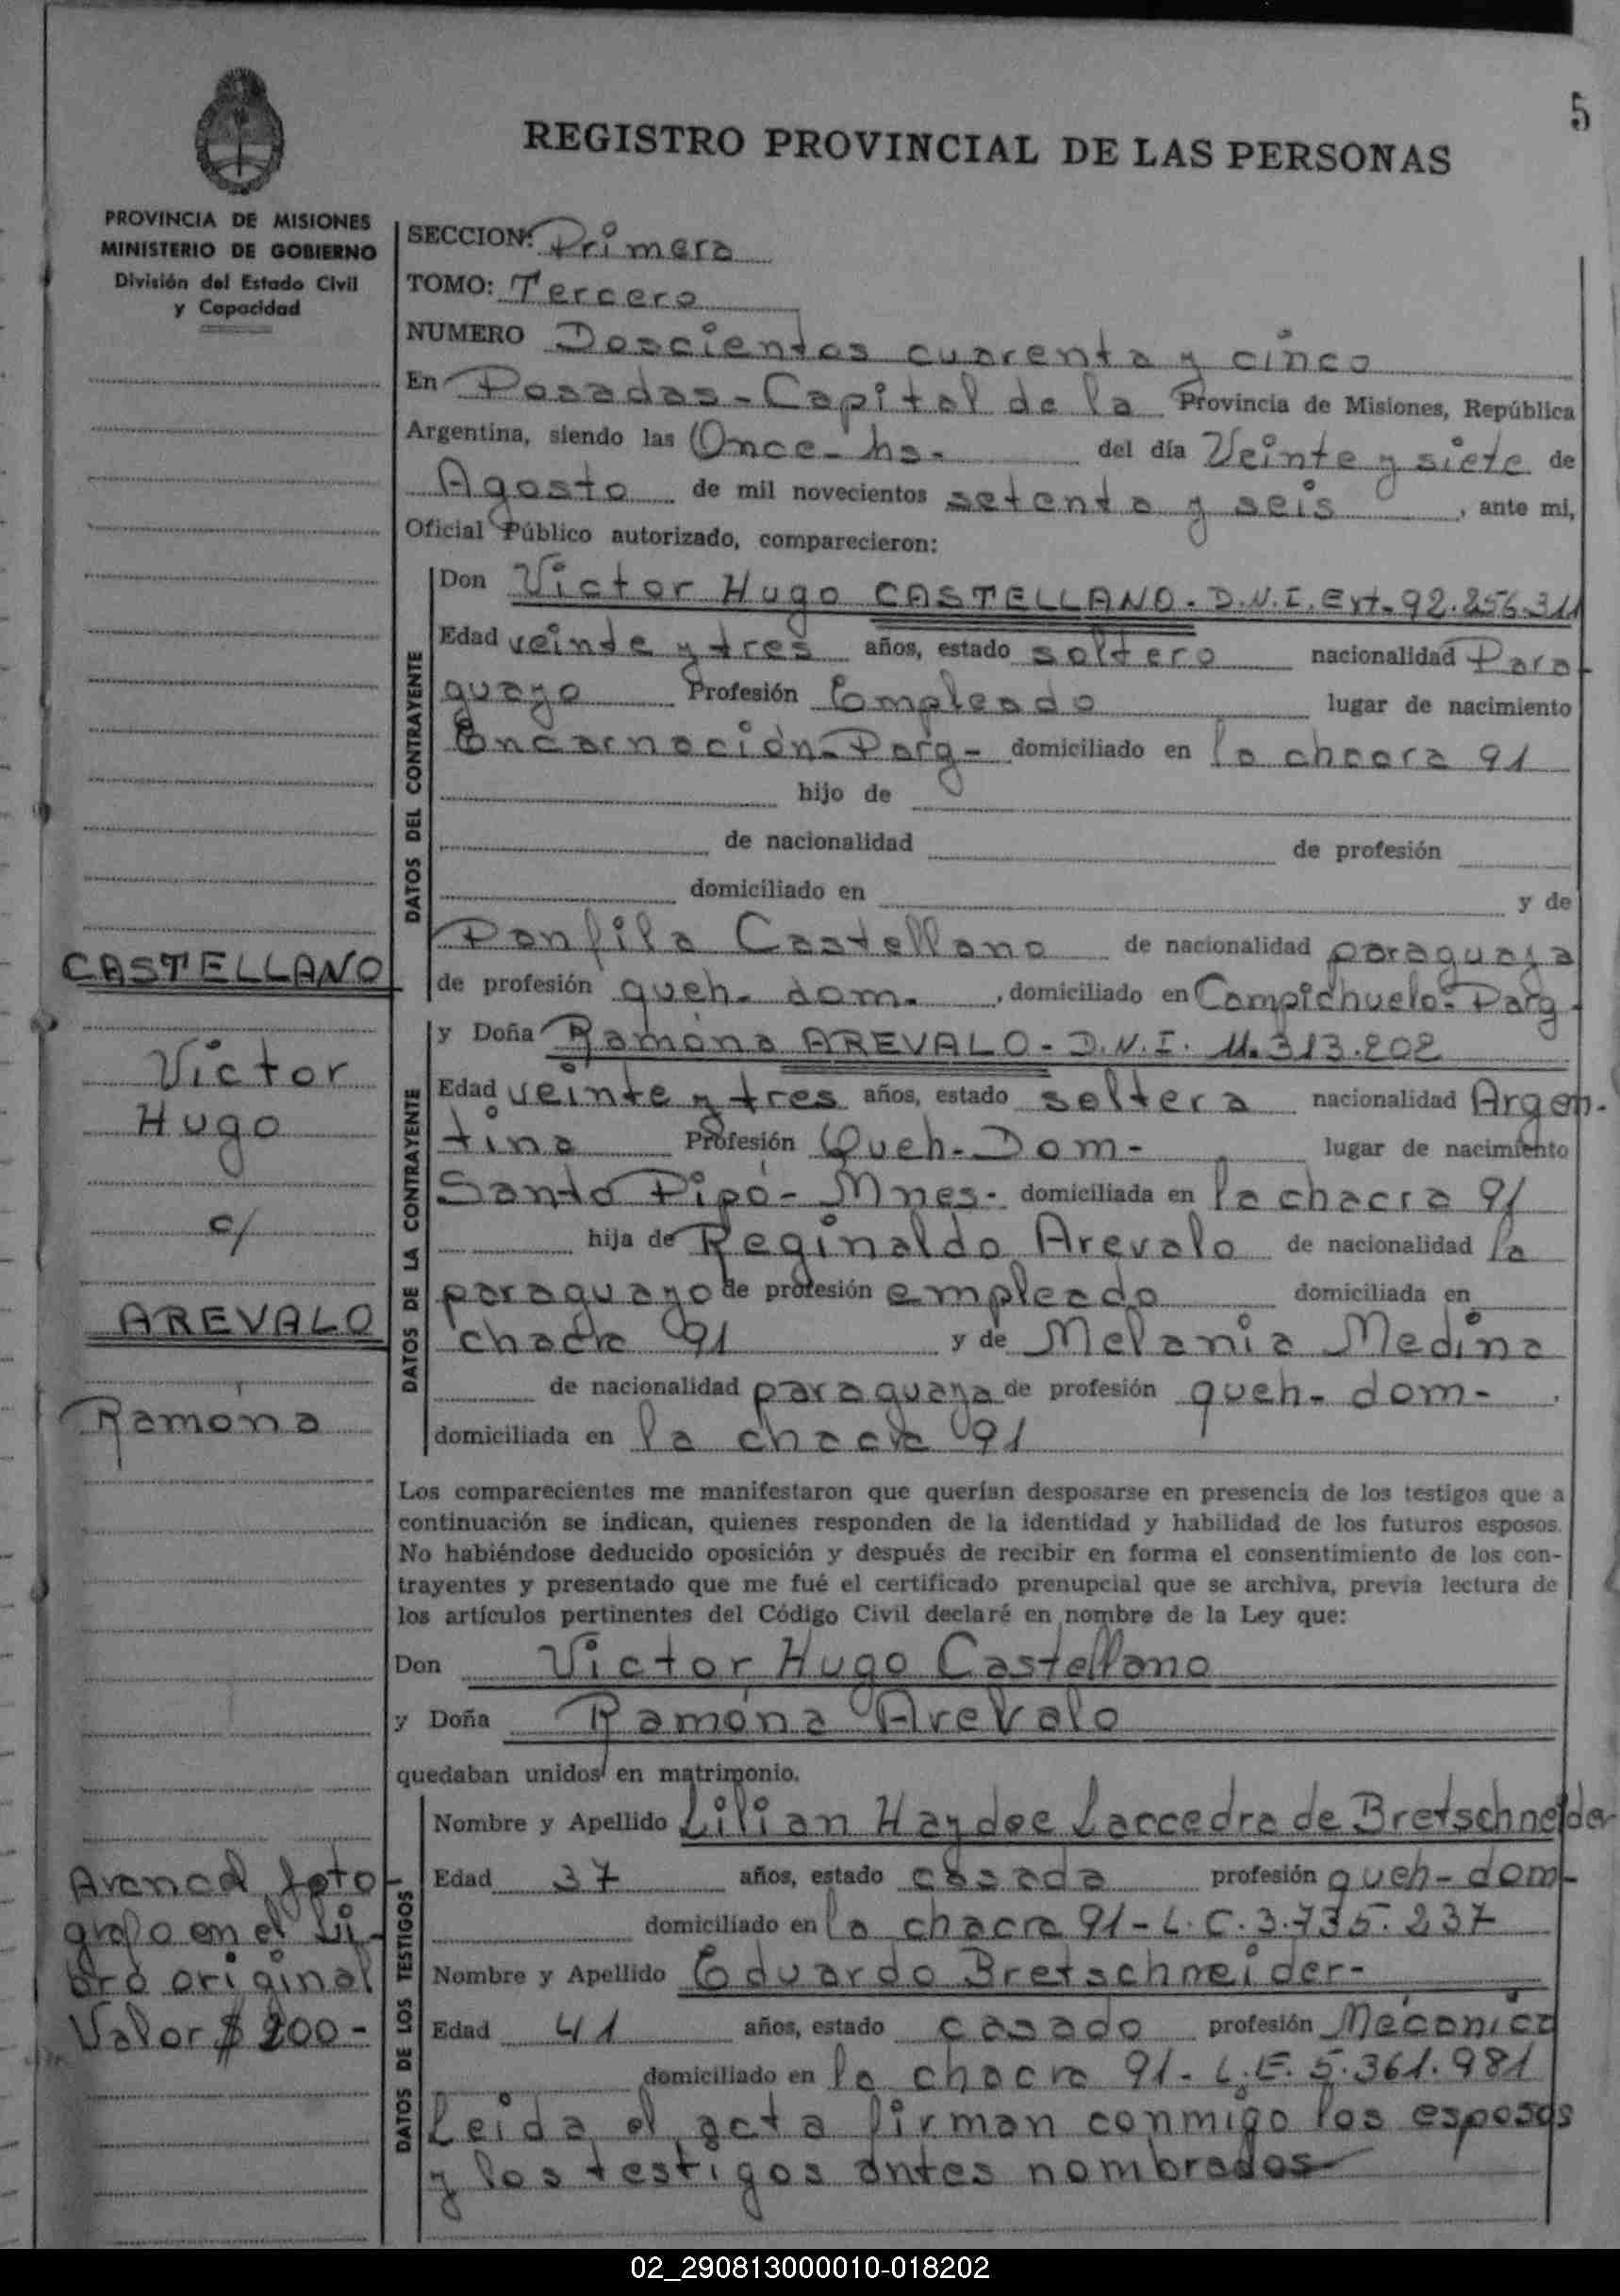 5
REGISTRO PROVINCIAL DE LAS PERSONAS
PROVINCIA DE MISIONES
MINISTERIO DE GOBIERNO
División del Estado Civil
y Capacidad
SECCION: Primera
TOMO: Tercero
NUMERO Doscientos cuarenta y cinco
En Posadas - Capital de la Provincia de Misiones, República
Argentina, siendo las Once - hs - del día Veinte y siete de
Agosto de mil novecientos setenta y seis, ante mi,
Oficial Público autorizado, comparecieron:
DATOS DEL CONTRAYENTE
Don Victor Hugo CASTELLANO - D.N.I. Ext - 92.256.311
Edad veinte y tres años, estado soltero nacionalidad Para-
guayo Profesión Empleado lugar de nacimiento
Encarnación - Parg - domiciliado en la chacra 91
hijo de
de nacionalidad de profesión
domiciliado en y de
Panfila Castellano de nacionalidad paraguaya
de profesión queh - dom -, domiciliado en Campichuelo - Parg -
DATOS DE LA CONTRAYENTE
y Doña Ramona AREVALO - D.N.I. 11.313.202
Edad veinte y tres años, estado soltera nacionalidad Argen-
tina Profesión Queh - Dom - lugar de nacimiento
Santo Pipó - Mnes - domiciliada en la chacra 91
hija de Reginaldo Arevalo de nacionalidad la
paraguayo de profesión empleado domiciliada en
chacra 91 y de Melania Medina
de nacionalidad paraguaya de profesión queh - dom -
domiciliada en la chacra 91
Los comparecientes me manifestaron que querían desposarse en presencia de los testigos que a
continuación se indican, quienes responden de la identidad y habilidad de los futuros esposos.
No habiéndose deducido oposición y después de recibir en forma el consentimiento de los con-
trayentes y presentado que me fué el certificado prenupcial que se archiva, previa lectura de
los artículos pertinentes del Código Civil declaré en nombre de la Ley que:
Don Victor Hugo Castellano
y Doña Ramona Arevalo
quedaban unidos en matrimonio.
DATOS DE LOS TESTIGOS
Nombre y Apellido Lilian Haydee Laccedra de Bretschneider
Edad 37 años, estado casada profesión queh - dom -
domiciliado en la chacra 91 - L.C. 3.735.237
Nombre y Apellido Eduardo Bretschneider -
Edad 41 años, estado casado profesión Mecánico
domiciliado en la chacra 91 - L.E. 5.361.981
Leida el acta firman conmigo los esposos
y los testigos antes nombrados
CASTELLANO
Victor
Hugo
c/
AREVALO
Ramona
Arancel foto-
grafo en el Li-
bro original
Valor $ 200 -
02_290813000010-018202